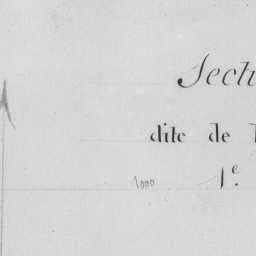 Secti
dite de
1000 1e.